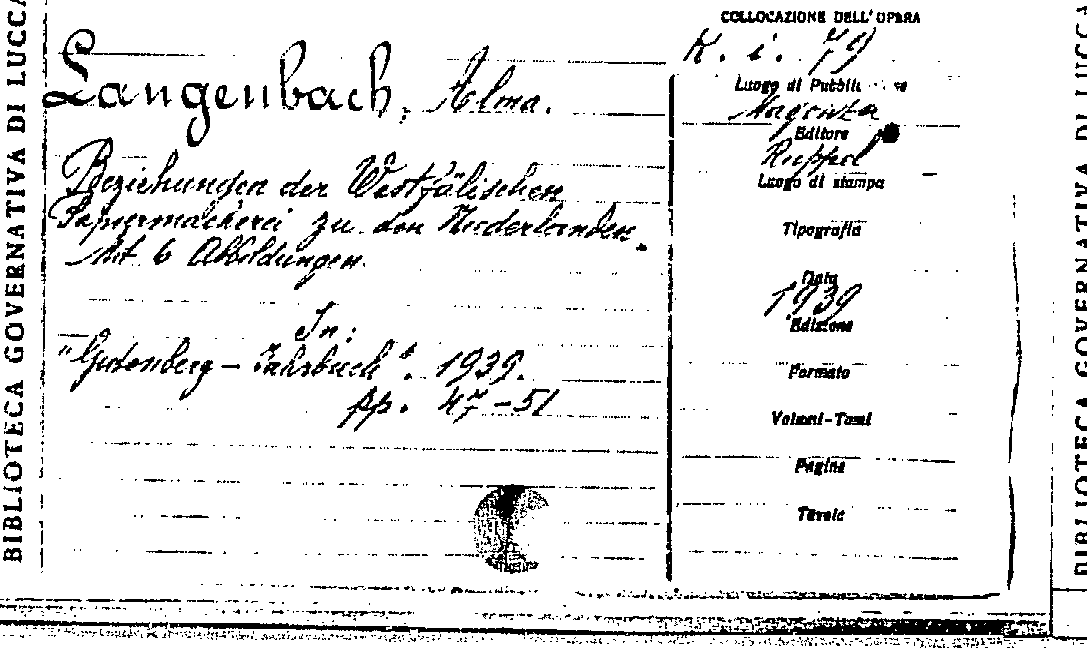 BIBLIOTECA GOVERNATIVA DI LUCCA
Langenbach, Alma.
Beziehungen der Westfälischen
Papiermacherei zu den Niederlanden.
Mit 6 Abbildungen.
In:
"Gutenberg - Jahrbuch". 1939.
pp. 47-51
COLLOCAZIONE DELL'OPERA
K. i. 79
Luogo di
Magonza
Editore
Ruppel
Luogo di stampa
Tipografia
Data
1939
Edizione
Formato
Volumi-Tomi
Pagine
Tavole
BIBLIOTECA GOVERNATIVA DI LUCCA